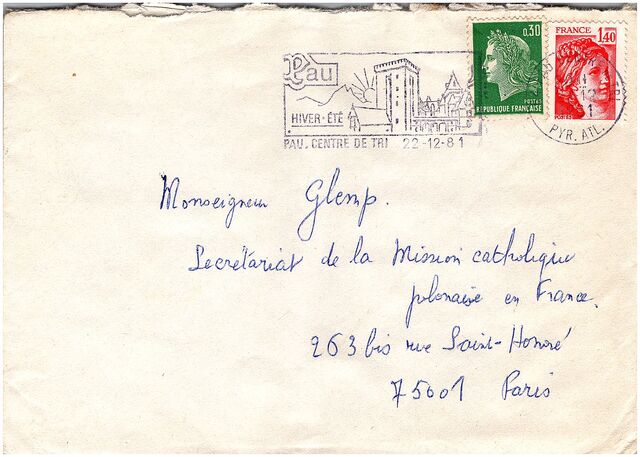 Pau
HIVER-ÉTÉ
PAU. CENTRE DE TRI 22-12-81
0,30
POSTES
RÉPUBLIQUE FRANÇAISE
FRANCE
1,40
PYR. ATL.
Monseigneur Glemp.
Secrétariat de la Mission catholique
polonaise en France.
263 bis rue Saint-Honoré
75001 Paris